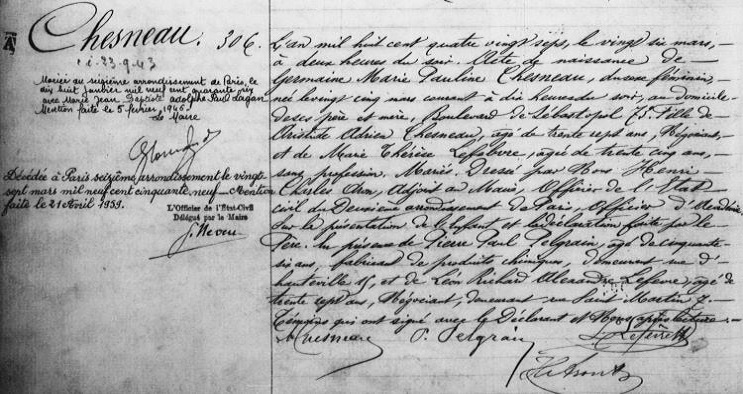 Chesneau. 306.
23-9-43
Mariée au seizième arrondissement de Paris, le
dix huit janvier mil neuf cent quarante six
avec Marie Jean Baptiste Adolphe Paul
Mention faite le 5 février 1946
Le Maire
Décédée à Paris seizième arrondissement le vingt
sept mars mil neuf cent cinquante neuf — Mention
faite le 21 Avril 1959.
L'Officier de l'État-Civil
Délégué par le Maire
L'an mil huit cent quatre vingt sept, le vingt six mars,
à deux heures du soir. Acte de naissance de
Germaine Marie Pauline Chesneau, du sexe féminin,
née le vingt cinq mars courant à dix heures du soir, au domicile
de ses père et mère, Boulevard de Sébastopol Fille de
Aristide Adrien Chesneau, agé de trente sept ans, Négociant,
et de Marie Thérèse Lefebvre, agée de trente cinq ans,
sans profession. Mariés. Dressé par Nous Henri
Charles Adjoint au Maire, Officier de l'Etat
civil du Deuxième arrondissement de Paris, Officier d'Académie
Sur la présentation de l'Enfant et la déclaration faite par le
Père. En présence de Pierre Paul Pelgrain, agé de cinquante
six ans, fabricant de produits chimiques, demeurant rue d'
hauteville et de Léon Richard Alexandre Lefèvre, agé de
trente sept ans, Négociant, demeurant rue Saint Martin 7.
Témoins qui ont signé avec le Déclarant et Nous après lecture.
Chesneau P. Pelgrain Lefèvre